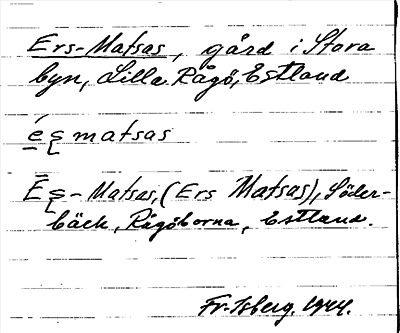 Ers-Matsas, gård i Stora
byn, Lilla Rågö, Estland
e̱ʂmatsas
Ēʂ-Matsas, (Ers Matsas), Söder-
bäck, Rågöborna, Estland.
Fr. Isberg, 1944.